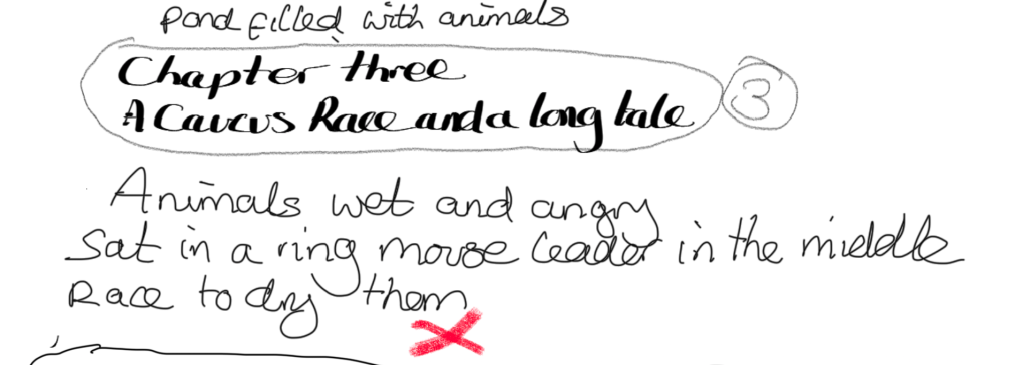 Pond filled with animals
Chapter three
A Caucus Race and a long tale
3
Animals wet and angry
Sat in a ring mouse leader in the middle
Race to dry them